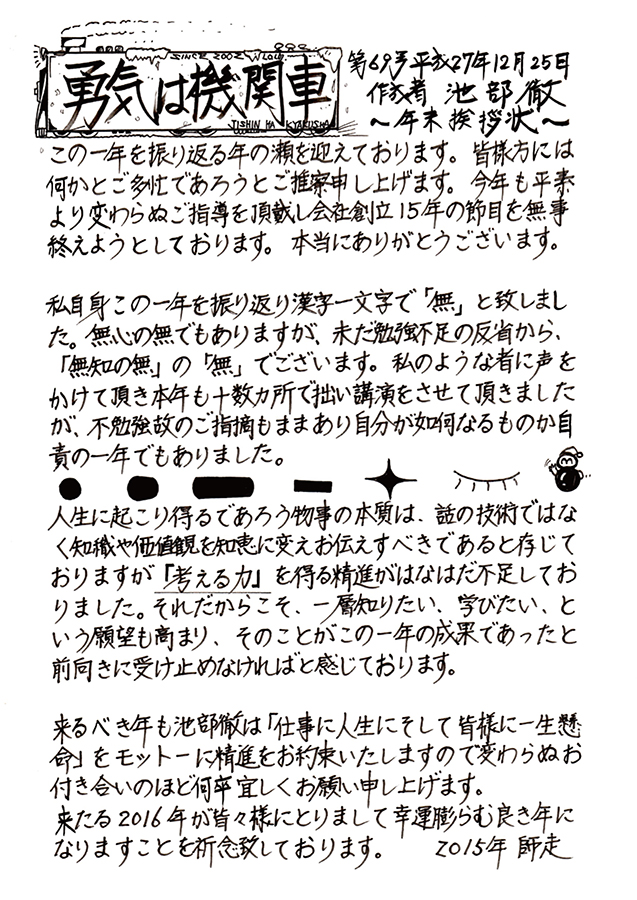 SINCE 2002
勇気は機関車
JISHIN HA KYAKUSHA
第69号平成27年12月25日
作成者 池部徹
〜年末挨拶状〜
この一年を振り返る年の瀬を迎えております。皆様方には
何かとご多忙であろうとご推察申し上げます。今年も平素
より変わらぬご指導を頂戴し会社創立15年の節目を無事
終えようとしております。本当にありがとうございます。
私自身この一年を振り返り漢字一文字で「無」と致しまし
た。無心の無でもありますが、未だ勉強不足の反省から、
「無知の無」の「無」でございます。私のような者に声を
かけて頂き本年も十数カ所で拙い講演をさせて頂きました
が、不勉強故のご指摘もままあり自分が如何なるものか自
責の一年でもありました。
人生に起こり得るであろう物事の本質は、話の技術ではな
く知識や価値観を知恵に変えお伝えすべきであると存じて
おりますが『考える力』を得る精進がはなはだ不足してお
りました。それだからこそ、一層知りたい、学びたい、と
いう願望も高まり、そのことがこの一年の成果であったと
前向きに受け止めなければと感じております。
来るべき年も池部徹は「仕事に人生にそして皆様に一生懸
命」をモットーに精進をお約束いたしますので変わらぬお
付き合いのほど何卒宜しくお願い申し上げます。
来たる2016年が皆々様にとりまして幸運膨らむ良き年に
なりますことを祈念致しております。 2015年 師走